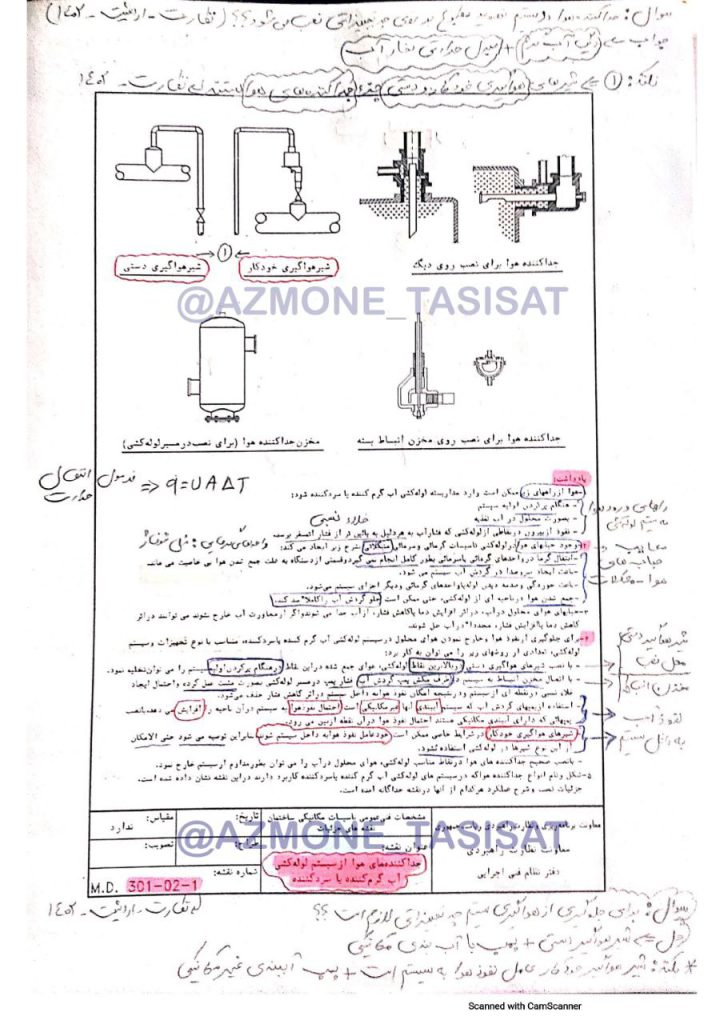 سوال: جداکننده هوا در سیستم بر روی چه تجهیزاتی نصب می شود؟؟ (نظارت - اردیبهشت - ۱۴۰۲)
جواب ← دیگ آب گرم + مبدل حرارتی بخار آب
نکته: ① ← شیرهای هواگیری خودکار و دستی جزء جداکننده‌های هوا هستند نظارت - ۱۴۰۲
جداکننده هوا برای نصب روی دیگ
①
شیر هواگیری خودکار
شیر هواگیری دستی
@AZMONE_TASISAT
جداکننده هوا برای نصب روی مخزن انبساط بسته
مخزن جداکننده هوا (برای نصب در مسیر لوله‌کشی)
فرمول انتقال حرارت ⇐ q̇=UA∆T
یادداشت:
۱-هوا از راههای زیر ممکن است وارد مدار بسته لوله‌کشی آب گرم کننده یا سرد کننده شود:
- هنگام پرکردن اولیه سیستم
- بصورت محلول در آب تغذیه
خلاء نسبی
- نفوذ از بیرون در نقاطی از لوله‌کشی که فشار آب به هر دلیل به پائین تر از فشار اتمسفر برسد
راههای ورود هوا به سیستم لوله‌کشی
۲-وجود حبابهای هوا در لوله‌کشی تاسیسات گرمائی و سرمائی مشکلاتی بشرح زیر ایجاد می کند:
- انتقال گرما در واحدهای گرمائی یا سرمائی بطور کامل انجام نمی گیرد و قسمتی از دستگاه به علت جمع شدن هوا بی خاصیت می ماند
- باعث ایجاد سر و صدا در گردش آب سیستم می شود.
- باعث خوردگی و صدمه دیدن لوله یا واحدهای گرمائی و دیگر اجزای سیستم می‌شود.
- جمع شدن هوا در ناحیه ای از لوله‌کشی، حتی ممکن است جلو گردش آب را کاملا" سد کند.
معایب حباب‌های هوا - مشکلات
۳-حبابهای هوای محلول در آب، در اثر افزایش دما یا کاهش فشار، از آب جدا می شوند و اگر از مجاورت آب خارج نشوند می توانند در اثر
کاهش دما یا افزایش فشار، مجددا" در آب حل شوند.
۴-برای جلوگیری از نفوذ هوا و خارج نمودن هوای محلول در سیستم لوله‌کشی آب گرم کننده یا سرد کننده، متناسب با نوع تجهیزات و سیستم
لوله‌کشی، تعدادی از روشهای زیر را می توان به کار برد:
- با نصب شیرهای هواگیری دستی در بالاترین نقاط لوله‌کشی، هوای جمع شده در این نقاط در هنگام پرکردن اولیه سیستم را می توان تخلیه نمود.
- با اتصال مخزن انبساط به سیستم در طرف مکش پمپ گردش آب، فشار پمپ در مسیر لوله‌کشی بصورت مثبت عمل کرده و احتمال ایجاد
خلاء نسبی در نقطه ای از سیستم و در نتیجه امکان نفوذ هوا به داخل سیستم در اثر کاهش فشار حذف می‌شود.
- استفاده از پمپهای گردش آب که سیستم آببندی آنها غیر مکانیکی است احتمال نفوذ هوا به سیستم در آن ناحیه را افزایش می دهد، با نصب
پمپهائی که دارای آببندی مکانیکی هستند احتمال نفوذ هوا در آن نقطه از بین می رود.
- شیرهای هواگیری خودکار در شرایط خاصی ممکن است خود عامل نفوذ هوا به داخل سیستم شوند بنابراین توصیه می شود حتی الامکان
از این نوع شیرها در لوله‌کشی استفاده نشود.
شیر هواگیری دستی
محل نصب
مخزن انبساط
به داخل سیستم
- با نصب صحیح جداکننده های هوا در نقاط مناسب لوله‌کشی، هوای محلول در آب را می توان بطور مداوم از سیستم خارج نمود.
۵-شکل و نام انواع جداکننده هوا که در سیستم های لوله‌کشی آب گرم کننده یا سرد کننده کاربرد دارند در این نقشه نشان داده شده است.
جزئیات نصب و شرح عملکرد هرکدام از آنها در نقشه جداگانه آمده است.
معاونت برنامه‌ریزی و نظارت راهبردی ریاست جمهوری
معاونت نظارت راهبردی
دفتر نظام فنی اجرایی
مشخصات فنی عمومی تاسیسات مکانیکی ساختمان
نقشه های جزئیات
عنوان نقشه:
جداکننده‌های هوا از سیستم لوله‌کشی
آب گرم کننده یا سرد کننده
تاریخ:
مقیاس:
ندارد
طراح:
تصویب:
@AZMONE_TASISAT
شماره نقشه:
M.D. 301-02-1
سوال: برای جلوگیری از هواگیری سیستم چه تجهیزاتی لازم است؟؟ نظارت - اردیبهشت - ۱۴۰۲
حل ← شیر هواگیر دستی + پمپ با آب بندی مکانیکی
* نکته: شیر هواگیر خودکار عامل نفوذ هوا به سیستم است + پمپ آببندی غیر مکانیکی
Scanned with CamScanner